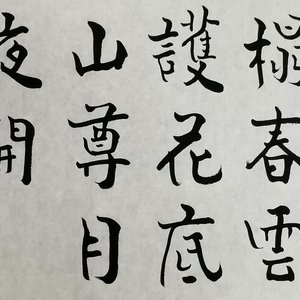 榻春雲
護花底
山尊月
夜開